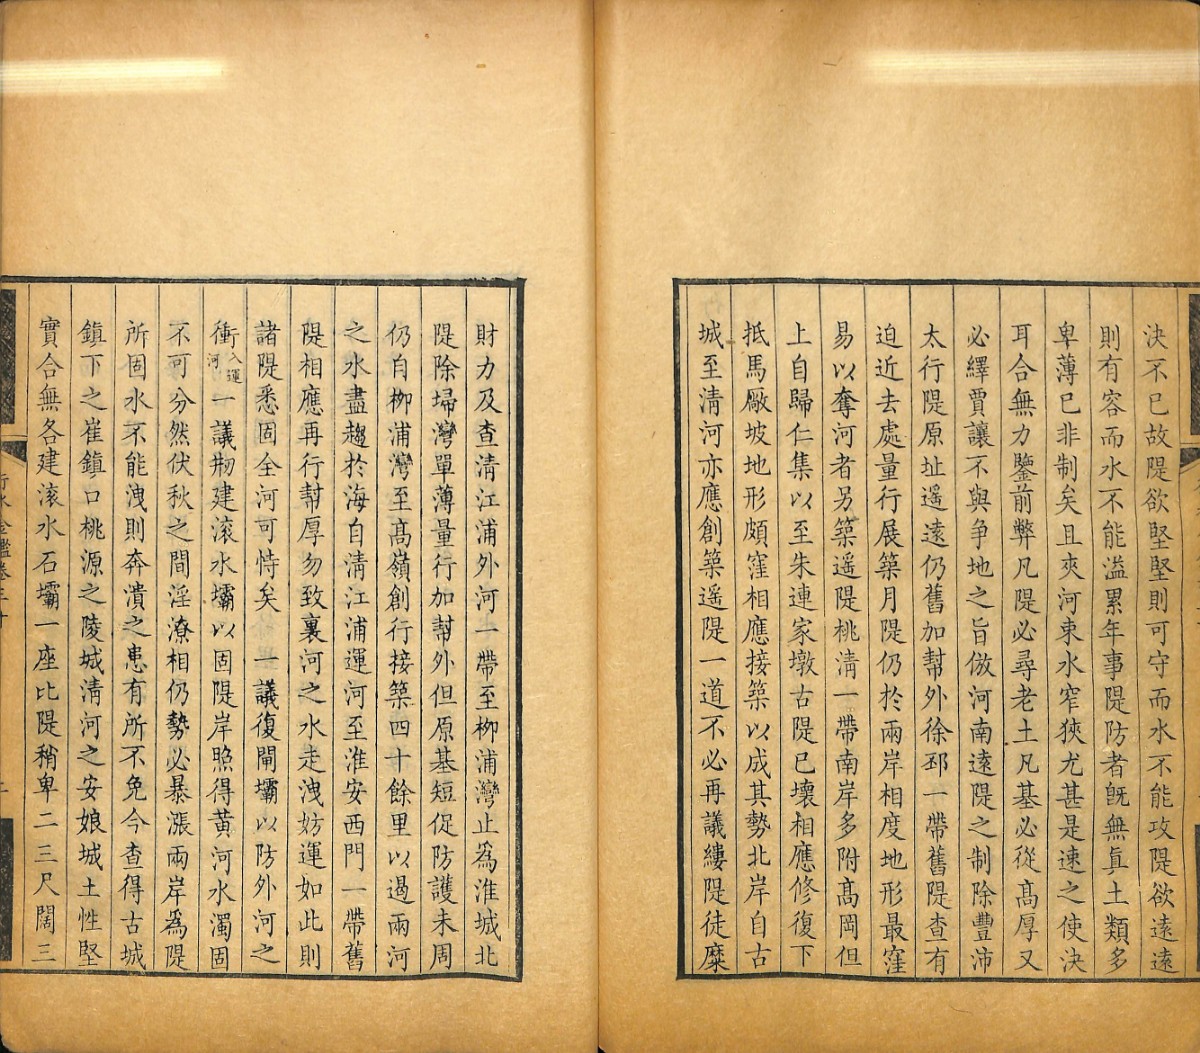 決不已故隄欲堅堅則可守而水不能攻隄欲遠遠
則有容而水不能溢累年事隄防者旣無眞土類多
卑薄已非制矣且夾河束水窄狹尤甚是速之使決
耳合無力鑒前弊凡隄必尋老土凡基必從髙厚又
必繹賈讓不與争地之旨倣河南遠隄之制除豐沛
太行隄原址遥遠仍舊加幫外徐邳一帶舊隄查有
迫近去處量行展築月隄仍於兩岸相度地形最窪
易以奪河者另築遥隄桃清一帶南岸多附髙岡但
上自歸仁集以至朱連家墩古隄已壞相應修復下
抵馬厰坡地形頗窪相應接築以成其勢北岸自古
城至清河亦應創築遥隄一道不必再議縷隄徒糜
財力及查清江浦外河一帶至栁浦灣止爲淮城北
隄除埽灣單薄量行加幫外但原基短促防護未周
仍自栁浦灣至髙嶺創行接築四十餘里以遏兩河
之水盡趨於海自清江浦運河至淮安西門一帶舊
隄相應再行幫厚勿致裏河之水走洩妨運如此則
諸隄悉固全河可恃矣一議復閘壩以防外河之
衝入運河一議剙建滚水壩以固隄岸照得黄河水濁固
不可分然伏秋之間淫潦相仍勢必暴漲兩岸爲隄
所固水不能洩則奔潰之患有所不免今查得古城
鎮下之崔鎮口桃源之陵城清河之安娘城土性堅
實合無各建滚水石壩一座比隄稍卑二三尺闊三
行水金鑑卷三十